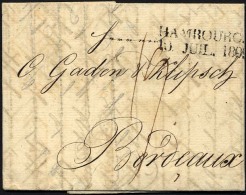 HAMBOURG
10 JUIL. 180
Herren
C. Gadon & Klipsch
Bordeaux